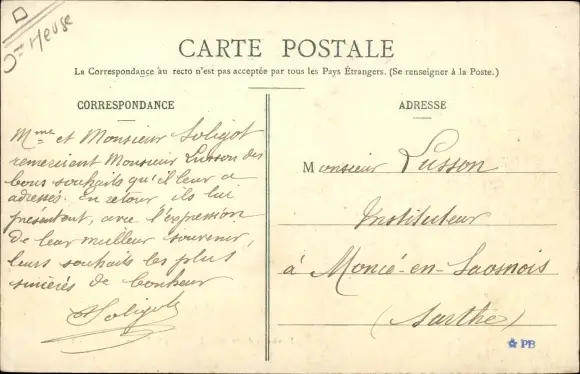 Hte Meuse
CARTE POSTALE
La Correspondance au recto n'est pas acceptée par tous les Pays Étrangers. (Se renseigner à la Poste.)
CORRESPONDANCE
Mme et Monsieur Soligot
remercient Monsieur Lusson des
bons souhaits qu'il leur a
adressés. En retour ils lui
présentent, avec l'expression
de leur meilleur souvenir,
leurs souhaits les plus
sincères de bonheur
Soligot
ADRESSE
Monsieur Lusson
Instituteur
à Moncé-en-Saosnois
(Sarthe)
PB